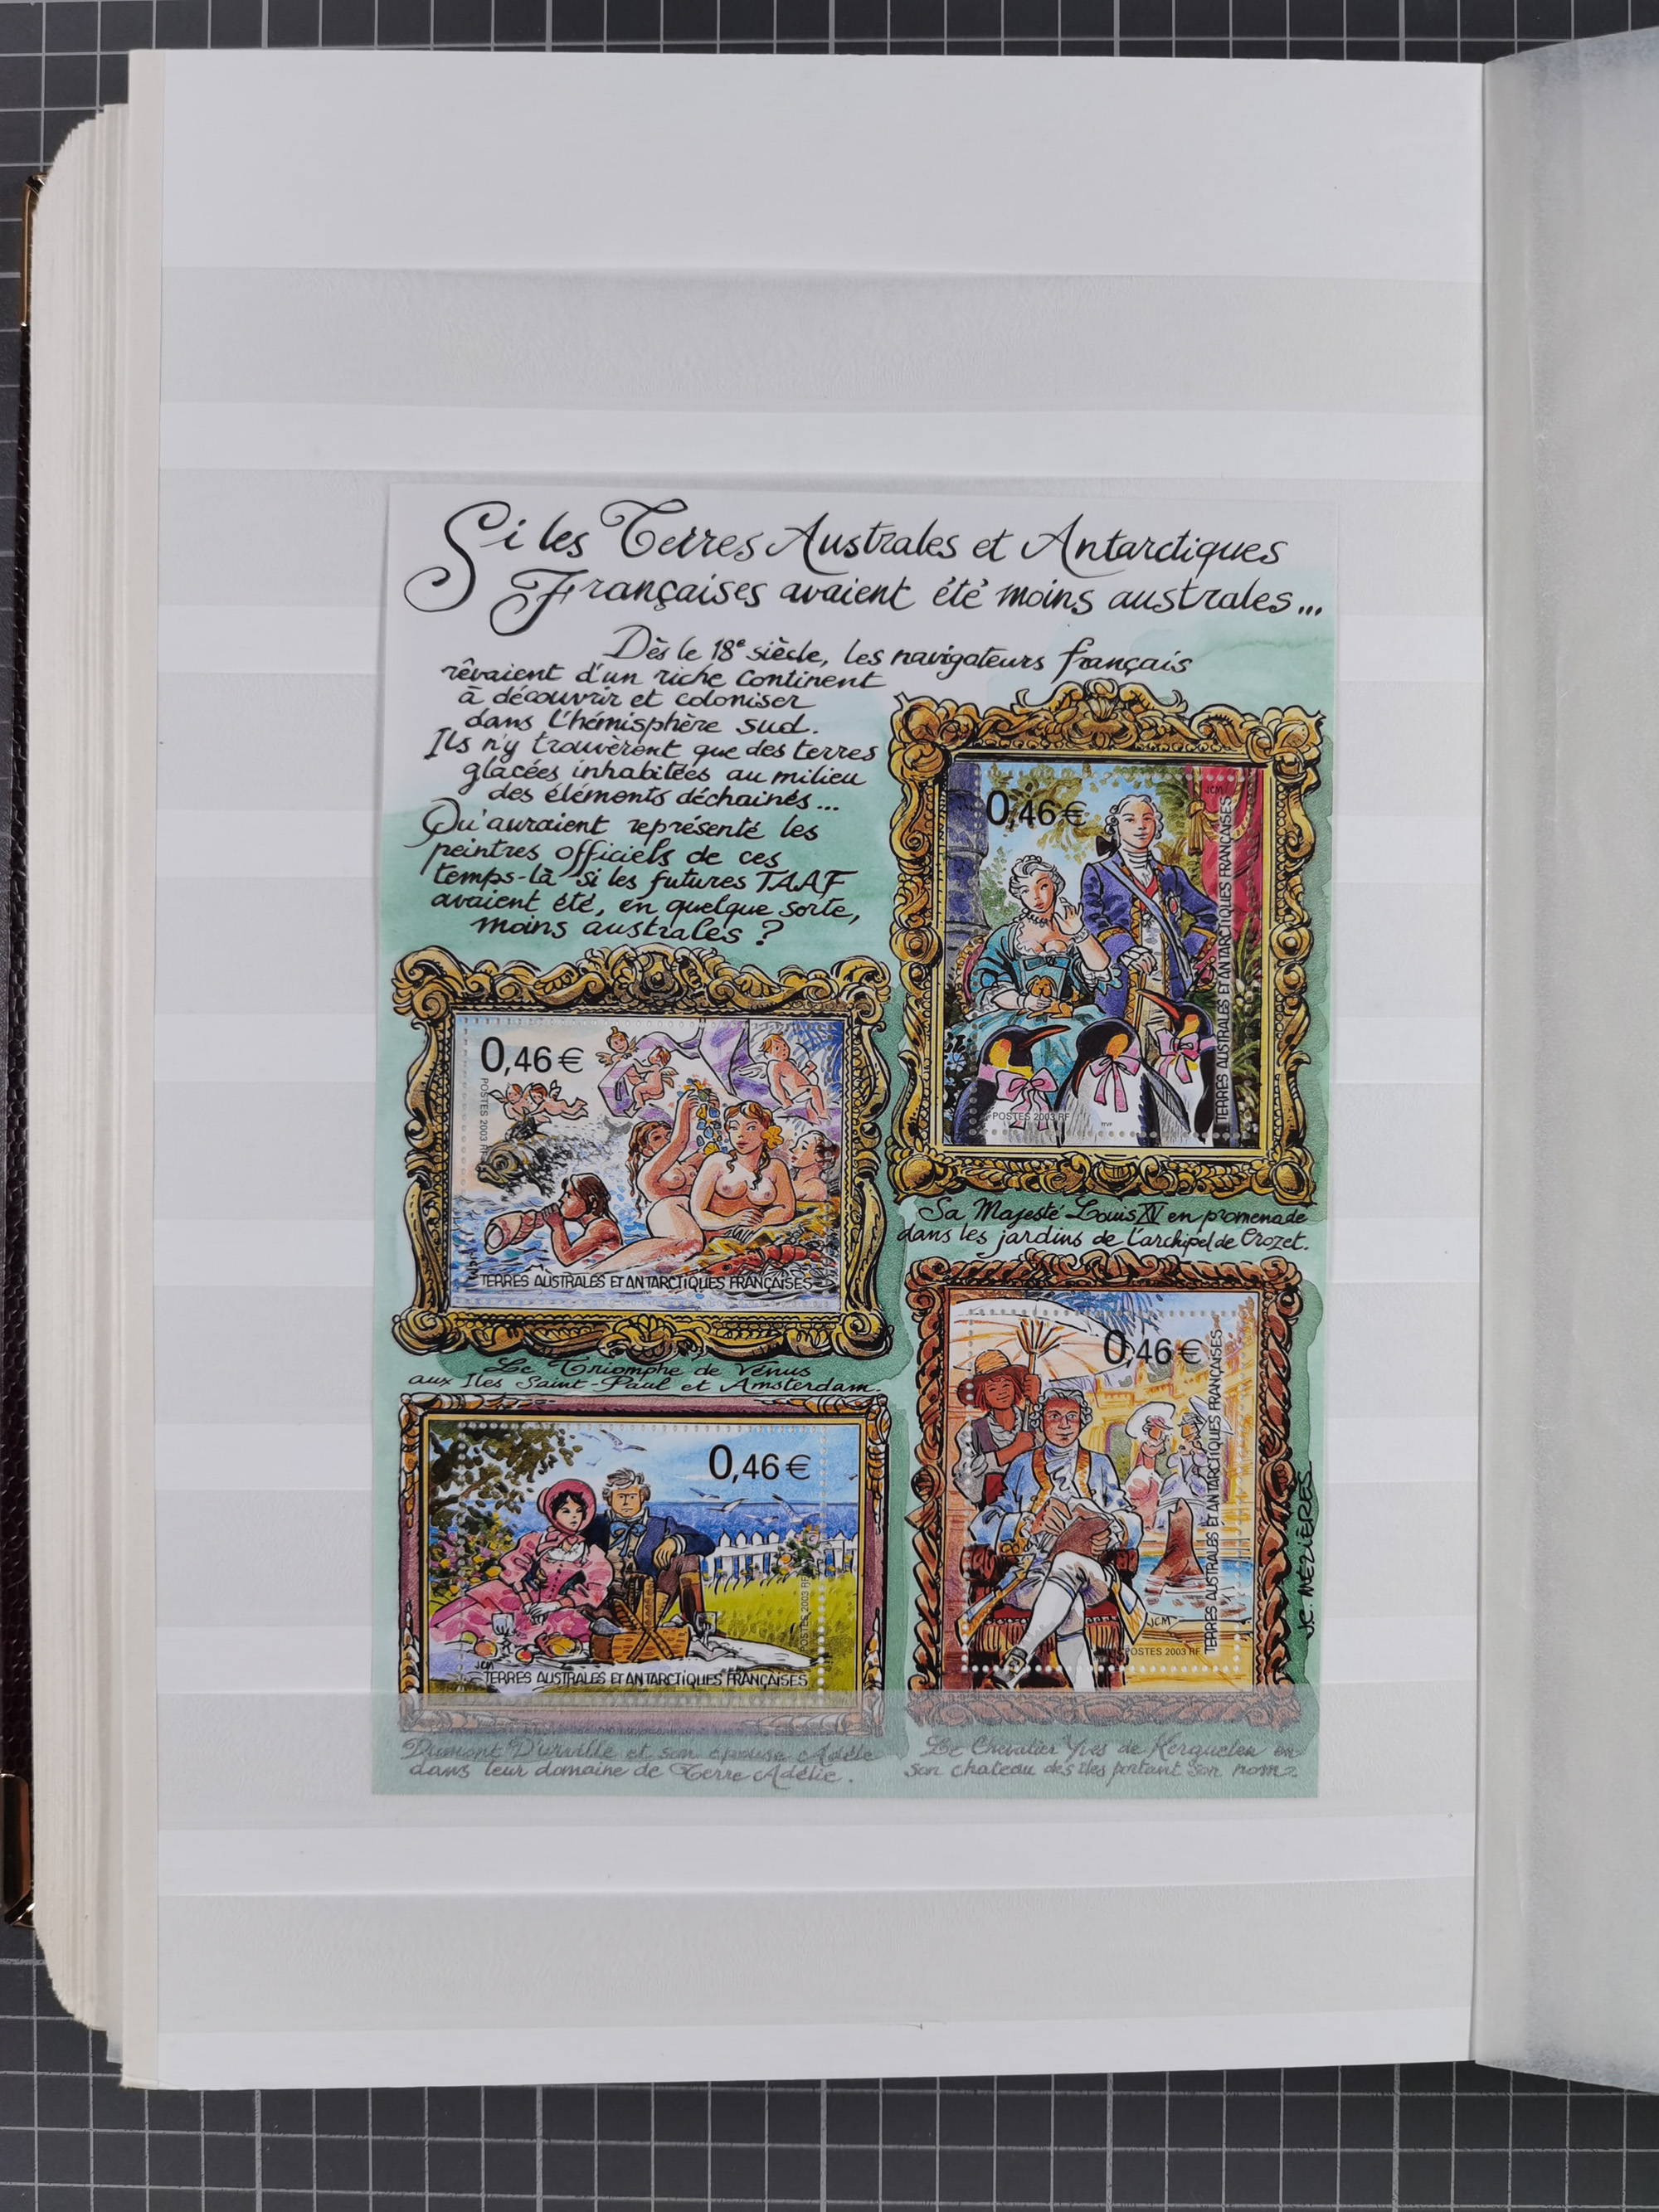 Si les Terres Australes et Antarctiques
Françaises avaient été moins australes...
Dès le 18e siècle, les navigateurs français
rêvaient d'un riche continent
à découvrir et coloniser
dans l'hémisphère sud.
Ils n'y trouvèrent que des terres
glacées inhabitées au milieu
des éléments déchainés...
Qu'auraient représenté les
peintres officiels de ces
temps-là si les futures TAAF
avaient été, en quelque sorte,
moins australes ?
0,46€
JCM
TERRES AUSTRALES ET ANTARCTIQUES FRANÇAISES
POSTES 2003 RF
ITVF
Sa Majesté Louis XV en promenade
dans les jardins de l'archipel de Crozet.
0,46€
POSTES 2003 RF
JCM
TERRES AUSTRALES ET ANTARCTIQUES FRANÇAISES
ITVF
Le Triomphe de Vénus
aux Iles Saint-Paul et Amsterdam.
0,46€
POSTES 2003 RF
JCM
TERRES AUSTRALES ET ANTARCTIQUES FRANÇAISES
Dumont D'urville et son épouse Adèle
dans leur domaine de Terre Adélie.
0,46€
TERRES AUSTRALES ET ANTARCTIQUES FRANÇAISES
JCM
POSTES 2003 RF
J.C. MÉZIÈRES
Le Chevalier Yves de Kerguelen en
son chateau des iles portant son nom